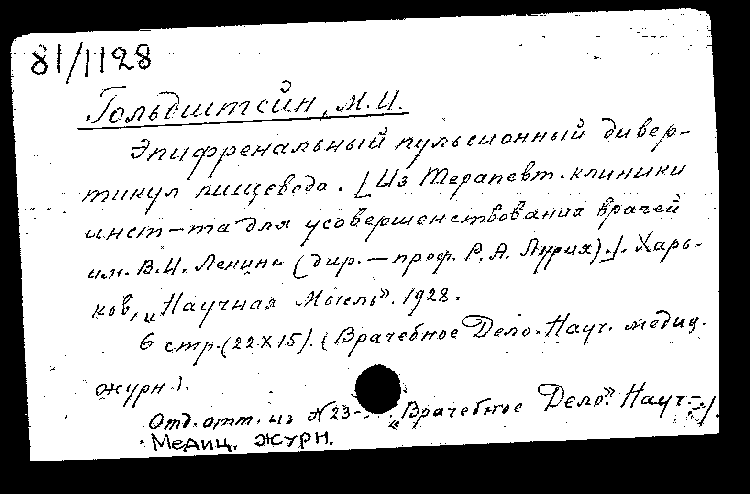 81/1128
Гольдштейн, М.И.
Эпифренальный пульсионный дивер-
тикул пищевода. [Из Терапевт. клиники
инст-та для усовершенствования врачей
им. В.И. Ленина (дир. — проф. Р.А. Лурия).]. Харь-
ков, „Научная Мысль". 1928.
6 стр. (22×15). (Врачебное Дело. Науч. медиц.
журн.).
Отд. отт. из №23- „Врачебное Дело". Науч.-
Медиц. журн.